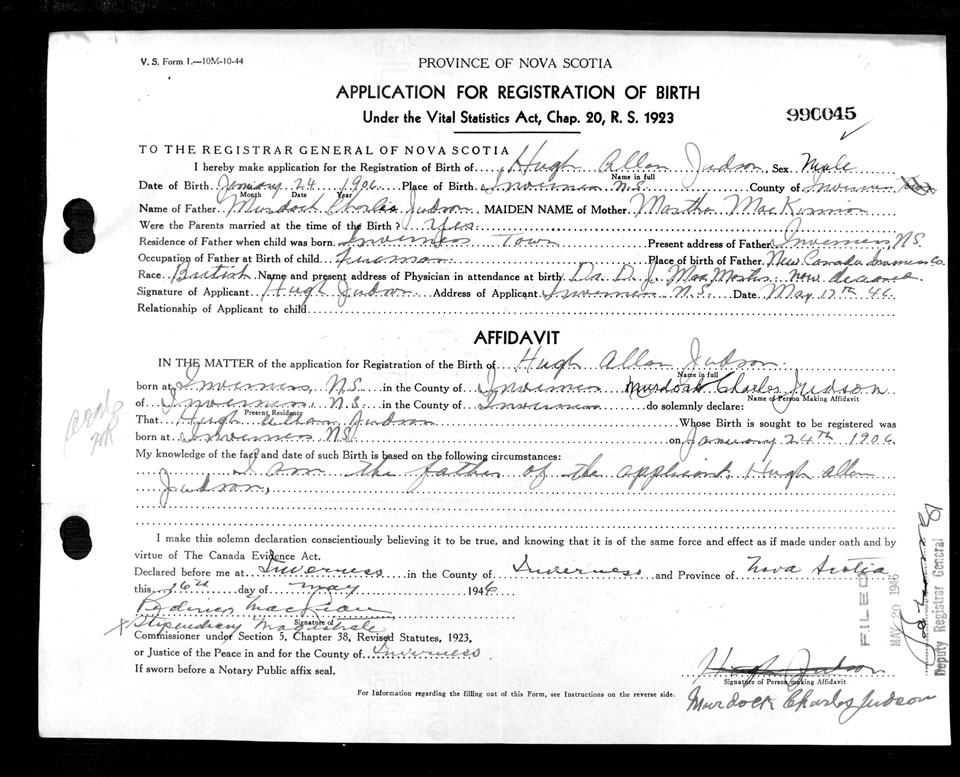 V. S. Form 1.—10M-10-44
PROVINCE OF NOVA SCOTIA
APPLICATION FOR REGISTRATION OF BIRTH
Under the Vital Statistics Act, Chap. 20, R. S. 1923
990045
TO THE REGISTRAR GENERAL OF NOVA SCOTIA
I hereby make application for the Registration of Birth of Hugh Allan Judson, Sex Male
Name in full
Date of Birth January 24 1906 Place of Birth Inverness N.S. County of Inverness
Month Date Year
Name of Father Murdoch Charles Judson MAIDEN NAME of Mother Martha MacKinnon
Were the Parents married at the time of the Birth? Yes
Residence of Father when child was born Inverness Town Present address of Father Inverness N.S.
Occupation of Father at Birth of child Fireman Place of Birth of Father New Canada Inverness Co.
Race British Name and present address of Physician in attendance at birth Dr. D. J. MacMaster now deceased
Signature of Applicant Hugh Judson Address of Applicant Inverness N.S. Date May 17th 46
Relationship of Applicant to child
AFFIDAVIT
IN THE MATTER of the application for Registration of the Birth of Hugh Allan Judson
Name in full
born at Inverness, N.S. in the County of Inverness Murdock Charles Judson
Name of Person Making Affidavit
of Inverness, N.S. in the County of Inverness do solemnly declare:
Present Residence
That Hugh Allan Judson Whose Birth is sought to be registered was
born at Inverness N.S. on January 24th 1906
My knowledge of the fact and date of such Birth is based on the following circumstances:
I am the father of the applicant Hugh Allan
Judson,
I make this solemn declaration conscientiously believing it to be true, and knowing that it is of the same force and effect as if made under oath and by
virtue of The Canada Evidence Act.
Declared before me at Inverness in the County of Inverness and Province of Nova Scotia
this 16th day of May 1946
Signature of
Stipendiary Magistrate
Commissioner under Section 5, Chapter 38, Revised Statutes, 1923,
or Justice of the Peace in and for the County of Inverness
If sworn before a Notary Public affix seal.
Hugh Judson
Signature of Person making Affidavit
Murdock Charles Judson
For Information regarding the filling out of this Form, see Instructions on the reverse side.
FILED
MAY 20 1946
Deputy Registrar General